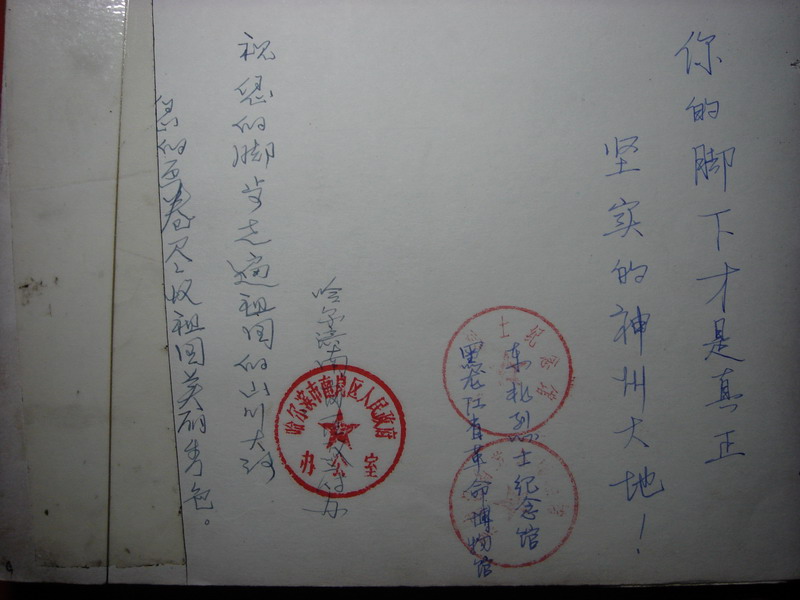 你的脚下才是真正
坚实的神州大地！
东北烈士纪念馆
黑龙江省革命博物馆
哈尔滨市南岗区人民政府
办公室
祝您的脚步走遍祖国的山川大河
您的画卷尽收祖国美丽景色。